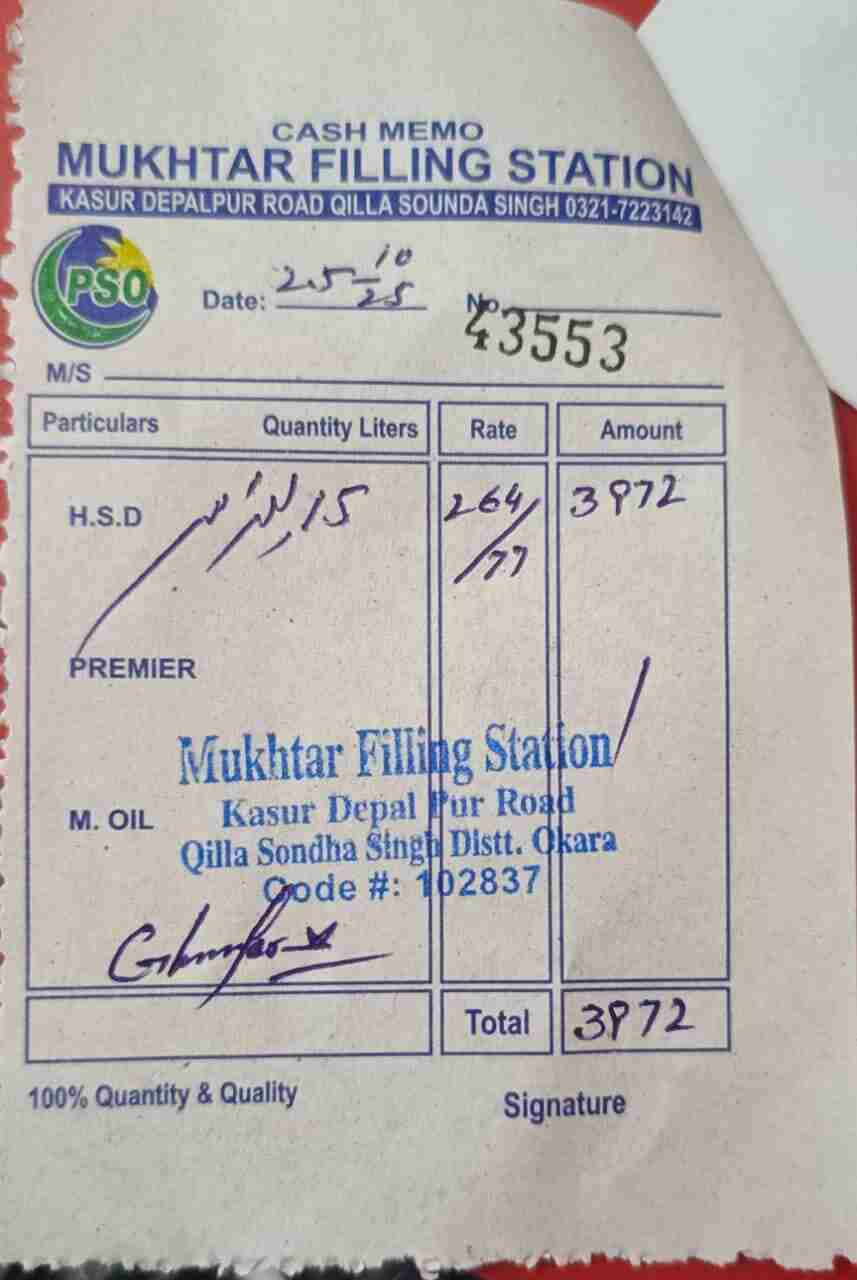 CASH MEMO
MUKHTAR FILLING STATION
KASUR DEPALPUR ROAD QILLA SOUNDA SINGH 0321-7223142
PSO
Date: 25-10/25 No. 43553
M/S
Particulars Quantity Liters Rate Amount
H.S.D 15 لیٹر 264/77 3972
PREMIER
Mukhtar Filling Station
M. OIL Kasur Depal Pur Road
Qilla Sondha Singh Distt. Okara
Code #: 102837
Total 3972
100% Quantity & Quality Signature